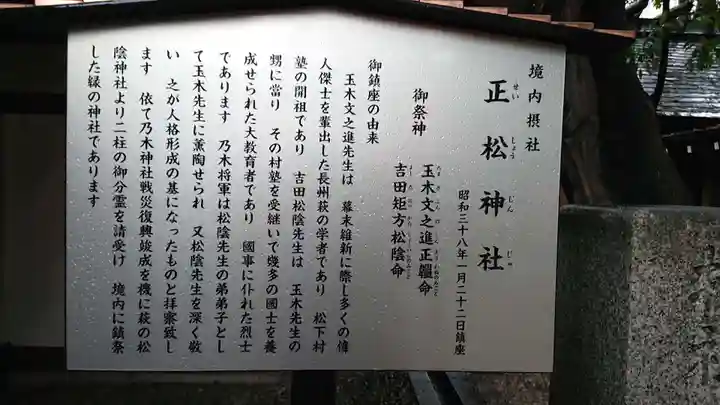 境内摂社
正松神社
せいしょうじんじゃ
昭和三十八年一月二十二日鎮座
御祭神
玉木文之進正韞命
吉田矩方松陰命
御鎮座の由来
玉木文之進先生は 幕末維新に際し多くの偉
人傑士を輩出した長州萩の学者であり 松下村
塾の開祖であり 吉田松陰先生は 玉木先生の
甥に當り その村塾を受継いで幾多の國士を養
成せられた大教育者であり 國事に仆れた烈士
であります 乃木将軍は松陰先生の弟弟子とし
て玉木先生に薫陶せられ 又松陰先生を深く敬
い 之が人格形成の基になったものと拝察致し
ます 依て乃木神社戦災復興竣成を機に萩の松
陰神社より二柱の御分霊を請受け 境内に鎮祭
した縁の神社であります